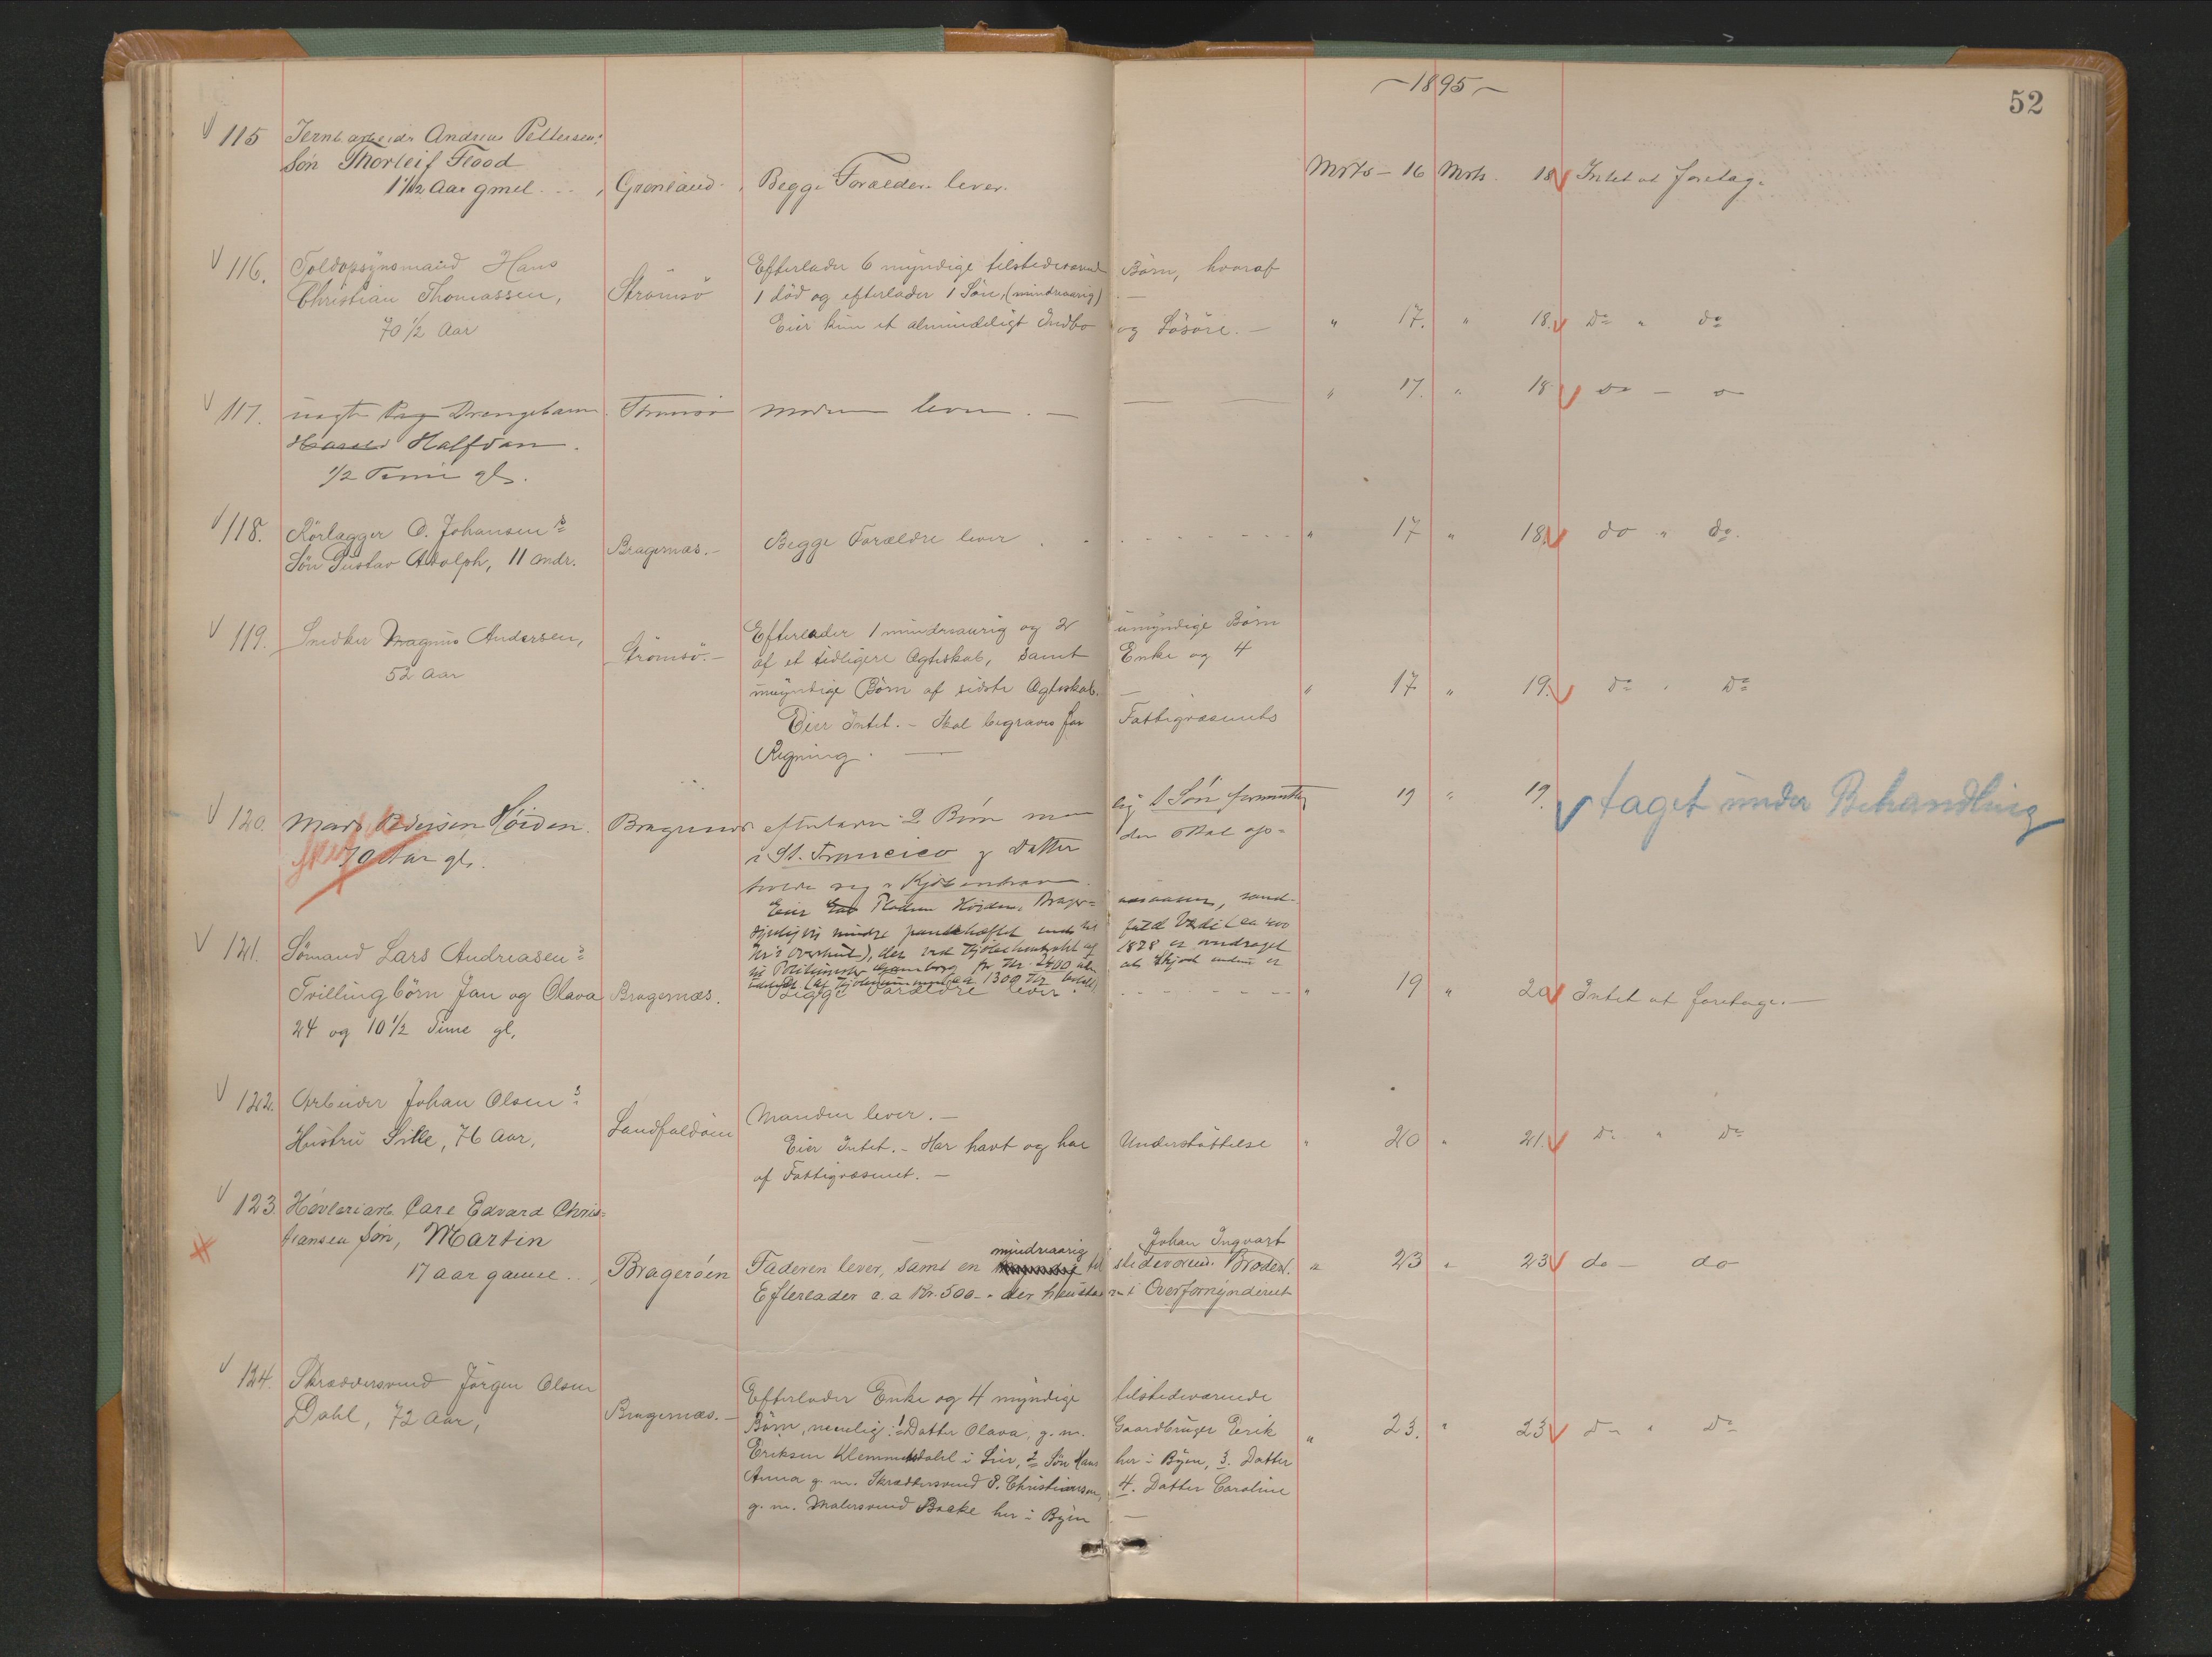 1895
52
115 Jernb arbeider Andreas Pettersens
Søn Thorleif Flood
1 1/12 Aar gmel. Grønland. Begge Forældre lever. Mrts - 16 Mrts. 18 Intet at foretag.
116. Toldopsynsmand Hans
Christian Thomassen,
70 1/2 Aar
Strømsö
Efterlader 6 myndige tilstedeværende Börn, hvoraf
1 död og efterlader 1 Sön, (mindreaarig) —
Eier kun et almindeligt Indbo og Lösöre. — " 17. " 18. Do " do
117. Drengebarn Strömsö Moderen lever. — " 17. " 18 do — o
Harald Halfdan.
1/2 Time gl.
118. Rörlægger O. Johansens
Sön Gustav Adolph, 11 Mdr. Bragernæs. — Begge Forældre lever " 17 " 18. do " do.
119. Snedker Magnus Andersen,
52 Aar
Strömsö. —
Efterlader 1 mindreaarig og 2 umyndige Börn
af et tidligere Ægteskab, samt Enke og 4
umyndige Börn af sidste Ægteskab. — " 17 " 19. do " Do
Eier Intet. — Skal begraves for Fattigvæsenets
Regning. —
120. Mads Pedersen Höiden. Bragernæs efterlader 2 Börn 1 Sön 19 " 19. taget under Behandling
70 Aar gl.
i St. Francisco og Datter der skal op=
holde sig i Kjöbenhavn.
Eier Pladsen Höiden, Brager=
121. Sömand Lars Andreasens
Tvillingbörn Jan og Olava Bragernæs. Begge Forældre lever. " 19 " 20 Intet at foretage. —
24 og 10 1/2 Time gl.
122. Arbeider Johan Olsens
Hustru Sille, 76 Aar,
Landfaldöen
Manden lever. —
Eier Intet. — Har havt og har Understöttelse " 20 " 21. Do " Do
af Fattigvæsenet. —
123. Høvleriarb. Carl Edvard Chris=
tiansen Søn, Martin
17 aar gamel.. Bragerøen
mindreaarig Johan Ingvart
Faderen lever, samt en tilstedeværend. Broder. " 23 " 23 do — do
Efterlader c.a Kr. 500 — der henstaar i Overformynderiet
124. Skræddersvend Jörgen Olsen
Dahl, 72 Aar,
Bragernæs. —
Efterlader Enke og 4 myndige tilstedeværende
Börn, nemlig: 1 Datter Olava, g. m. Gaardbruger Eerik " 23. " 23 do " Do
Eriksen Klemmetsdahl i Lier, 2 Sön Hans her i Byen, 3. Datter
Anna g. m. Skræddersvend P. Christiansen, 4. Datter Caroline
g. m. Malersvend Bakke her i Byen —